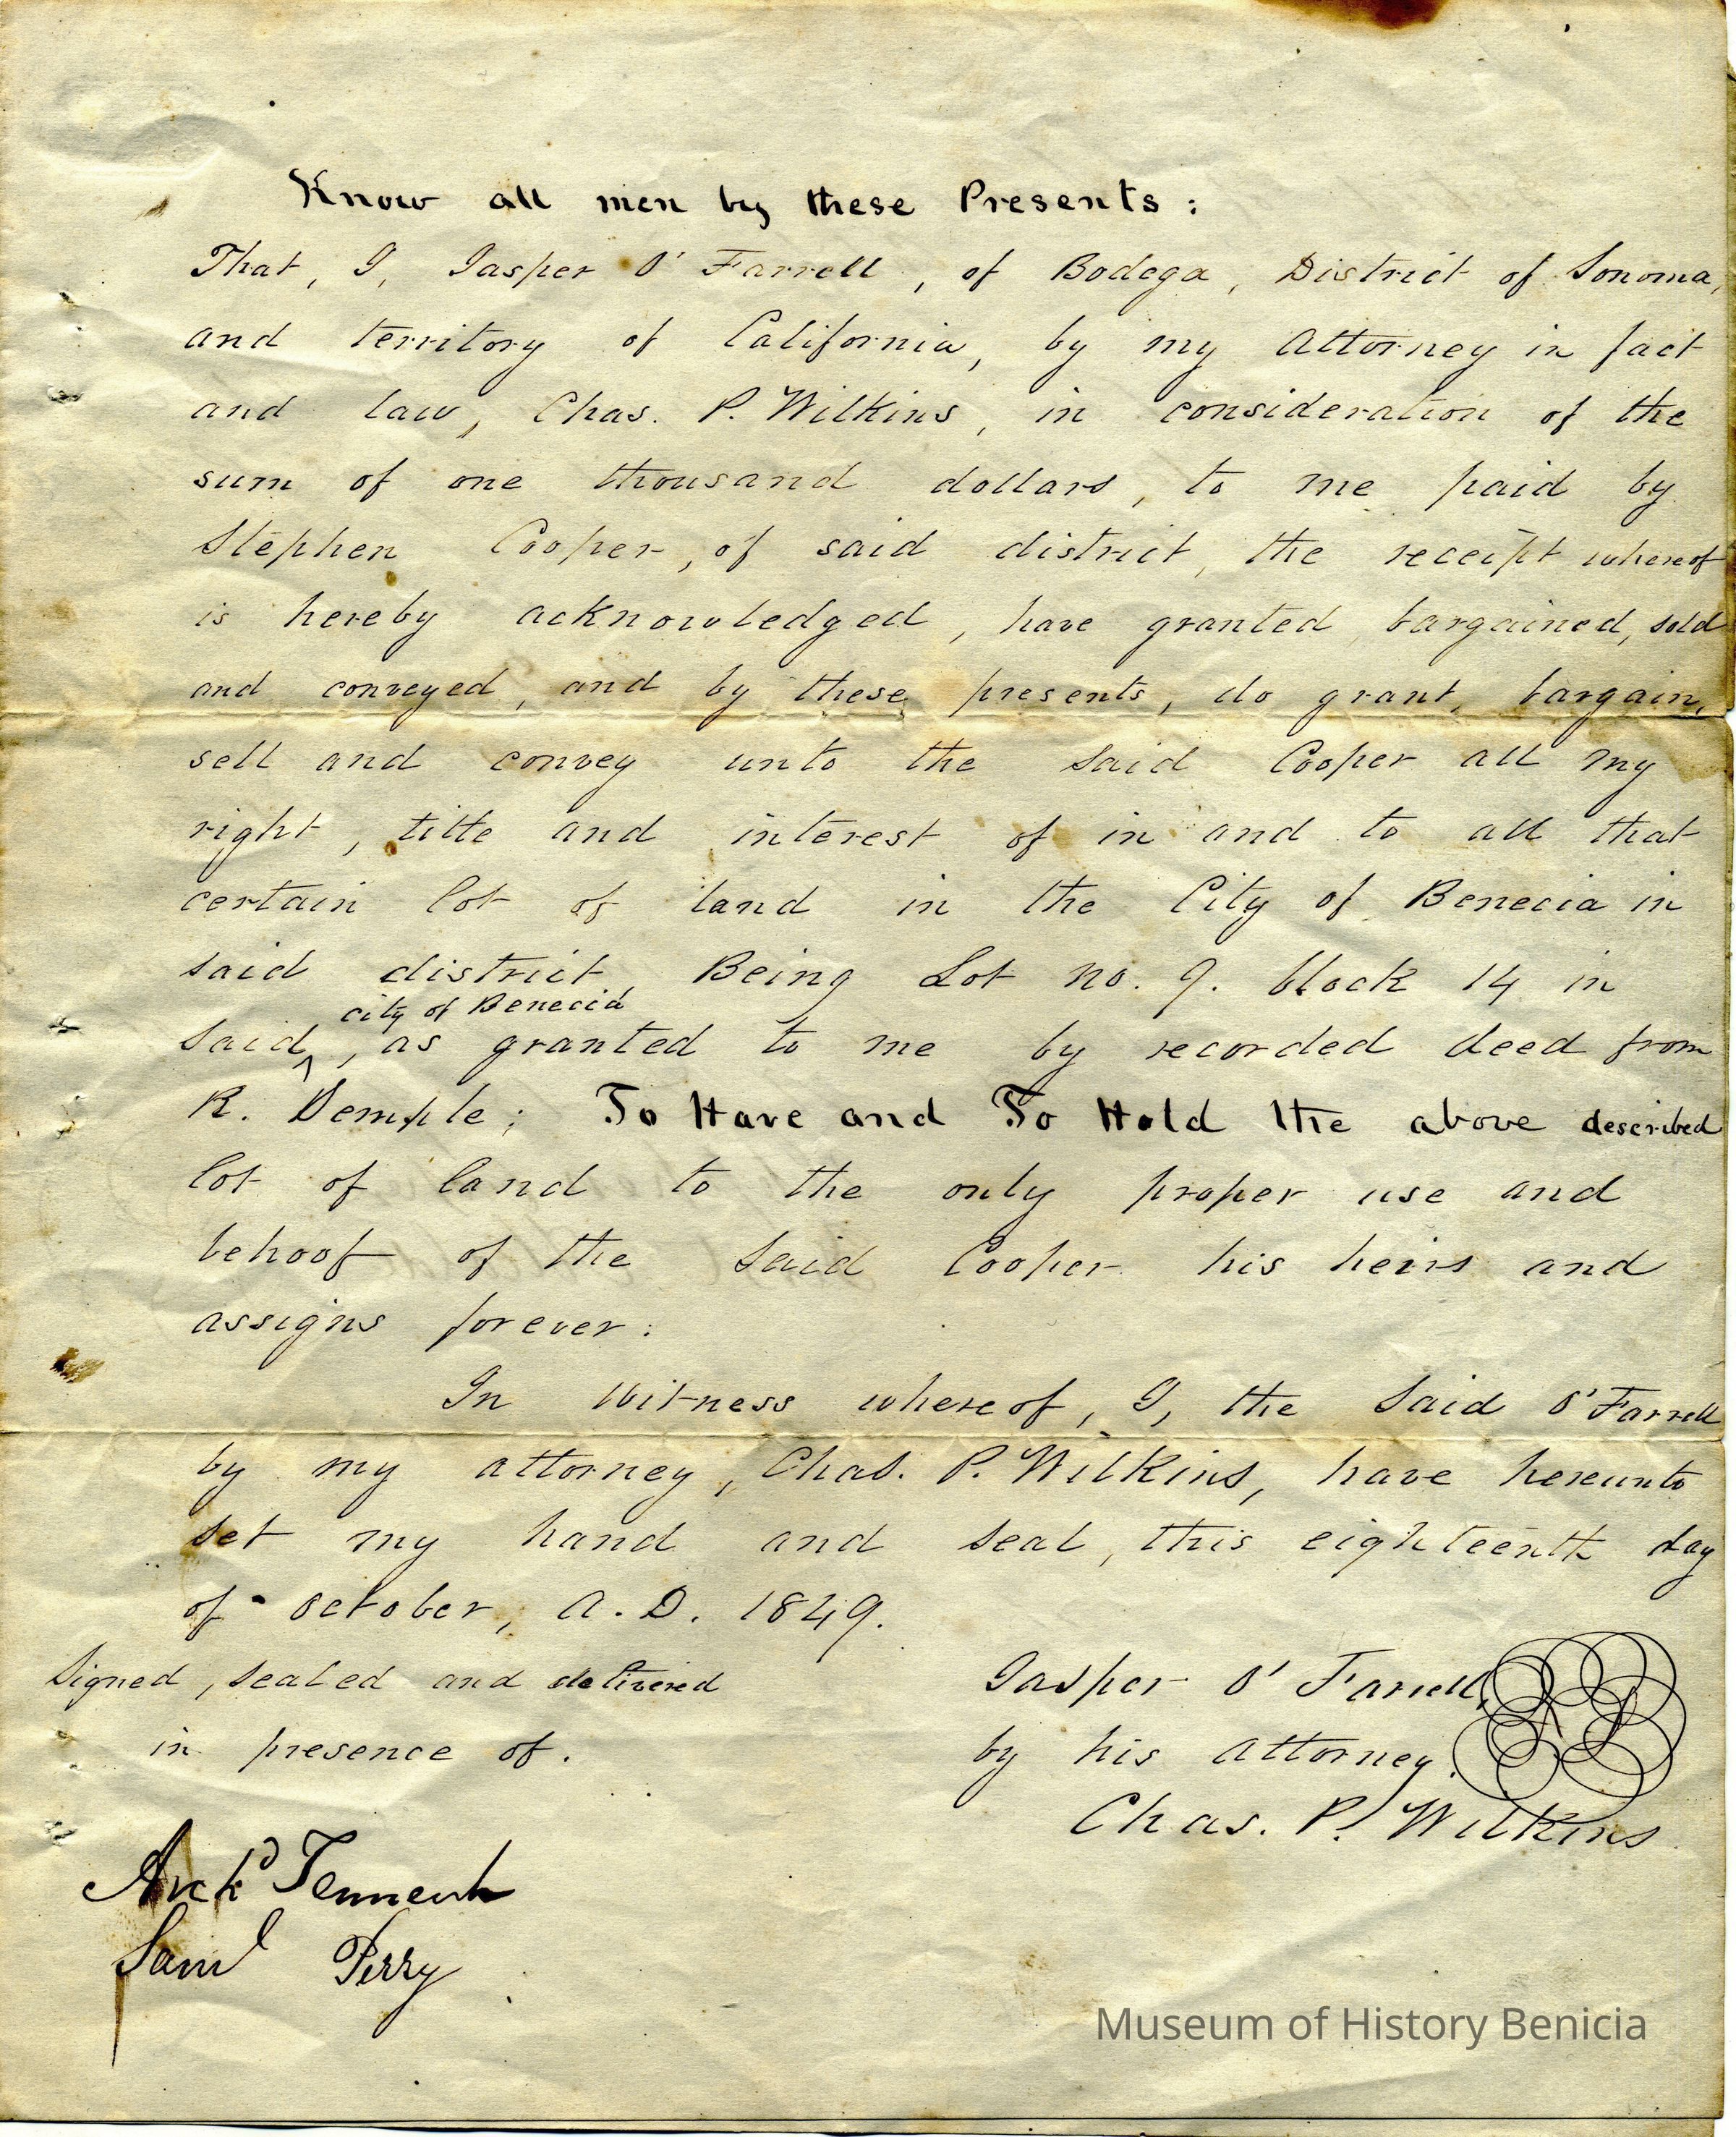 Know all men by these Presents:
That, I, Jasper O'Farrell, of Bodega, District of Sonoma,
and territory of California, by my Attorney in fact
and law, Chas. P. Wilkins, in consideration of the
sum of one thousand dollars, to me paid by
Stephen Cooper, of said district, the receipt whereof
is hereby acknowledged, have granted, bargained, sold
and conveyed, and by these presents, do grant, bargain,
sell and convey unto the said Cooper all my
right, title and interest of in and to all that
certain lot of land in the City of Benecia in
said district, Being Lot no. 9. block 14 in
city of Benecia
said, as granted to me by recorded deed from
R. Semple; To Have and To Hold the above described
lot of land to the only proper use and
behoof of the said Cooper his heirs and
assigns forever:
In Witness whereof, I, the said O'Farrell
by my attorney, Chas. P. Wilkins, have hereunto
set my hand and seal, this eighteenth day
of October, A.D. 1849.
Signed, sealed and delivered
in presence of.
Jasper O'Farrell,
by his Attorney.
Chas. P. Wilkins
Archd Tennent
Saml Perry
Museum of History Benicia